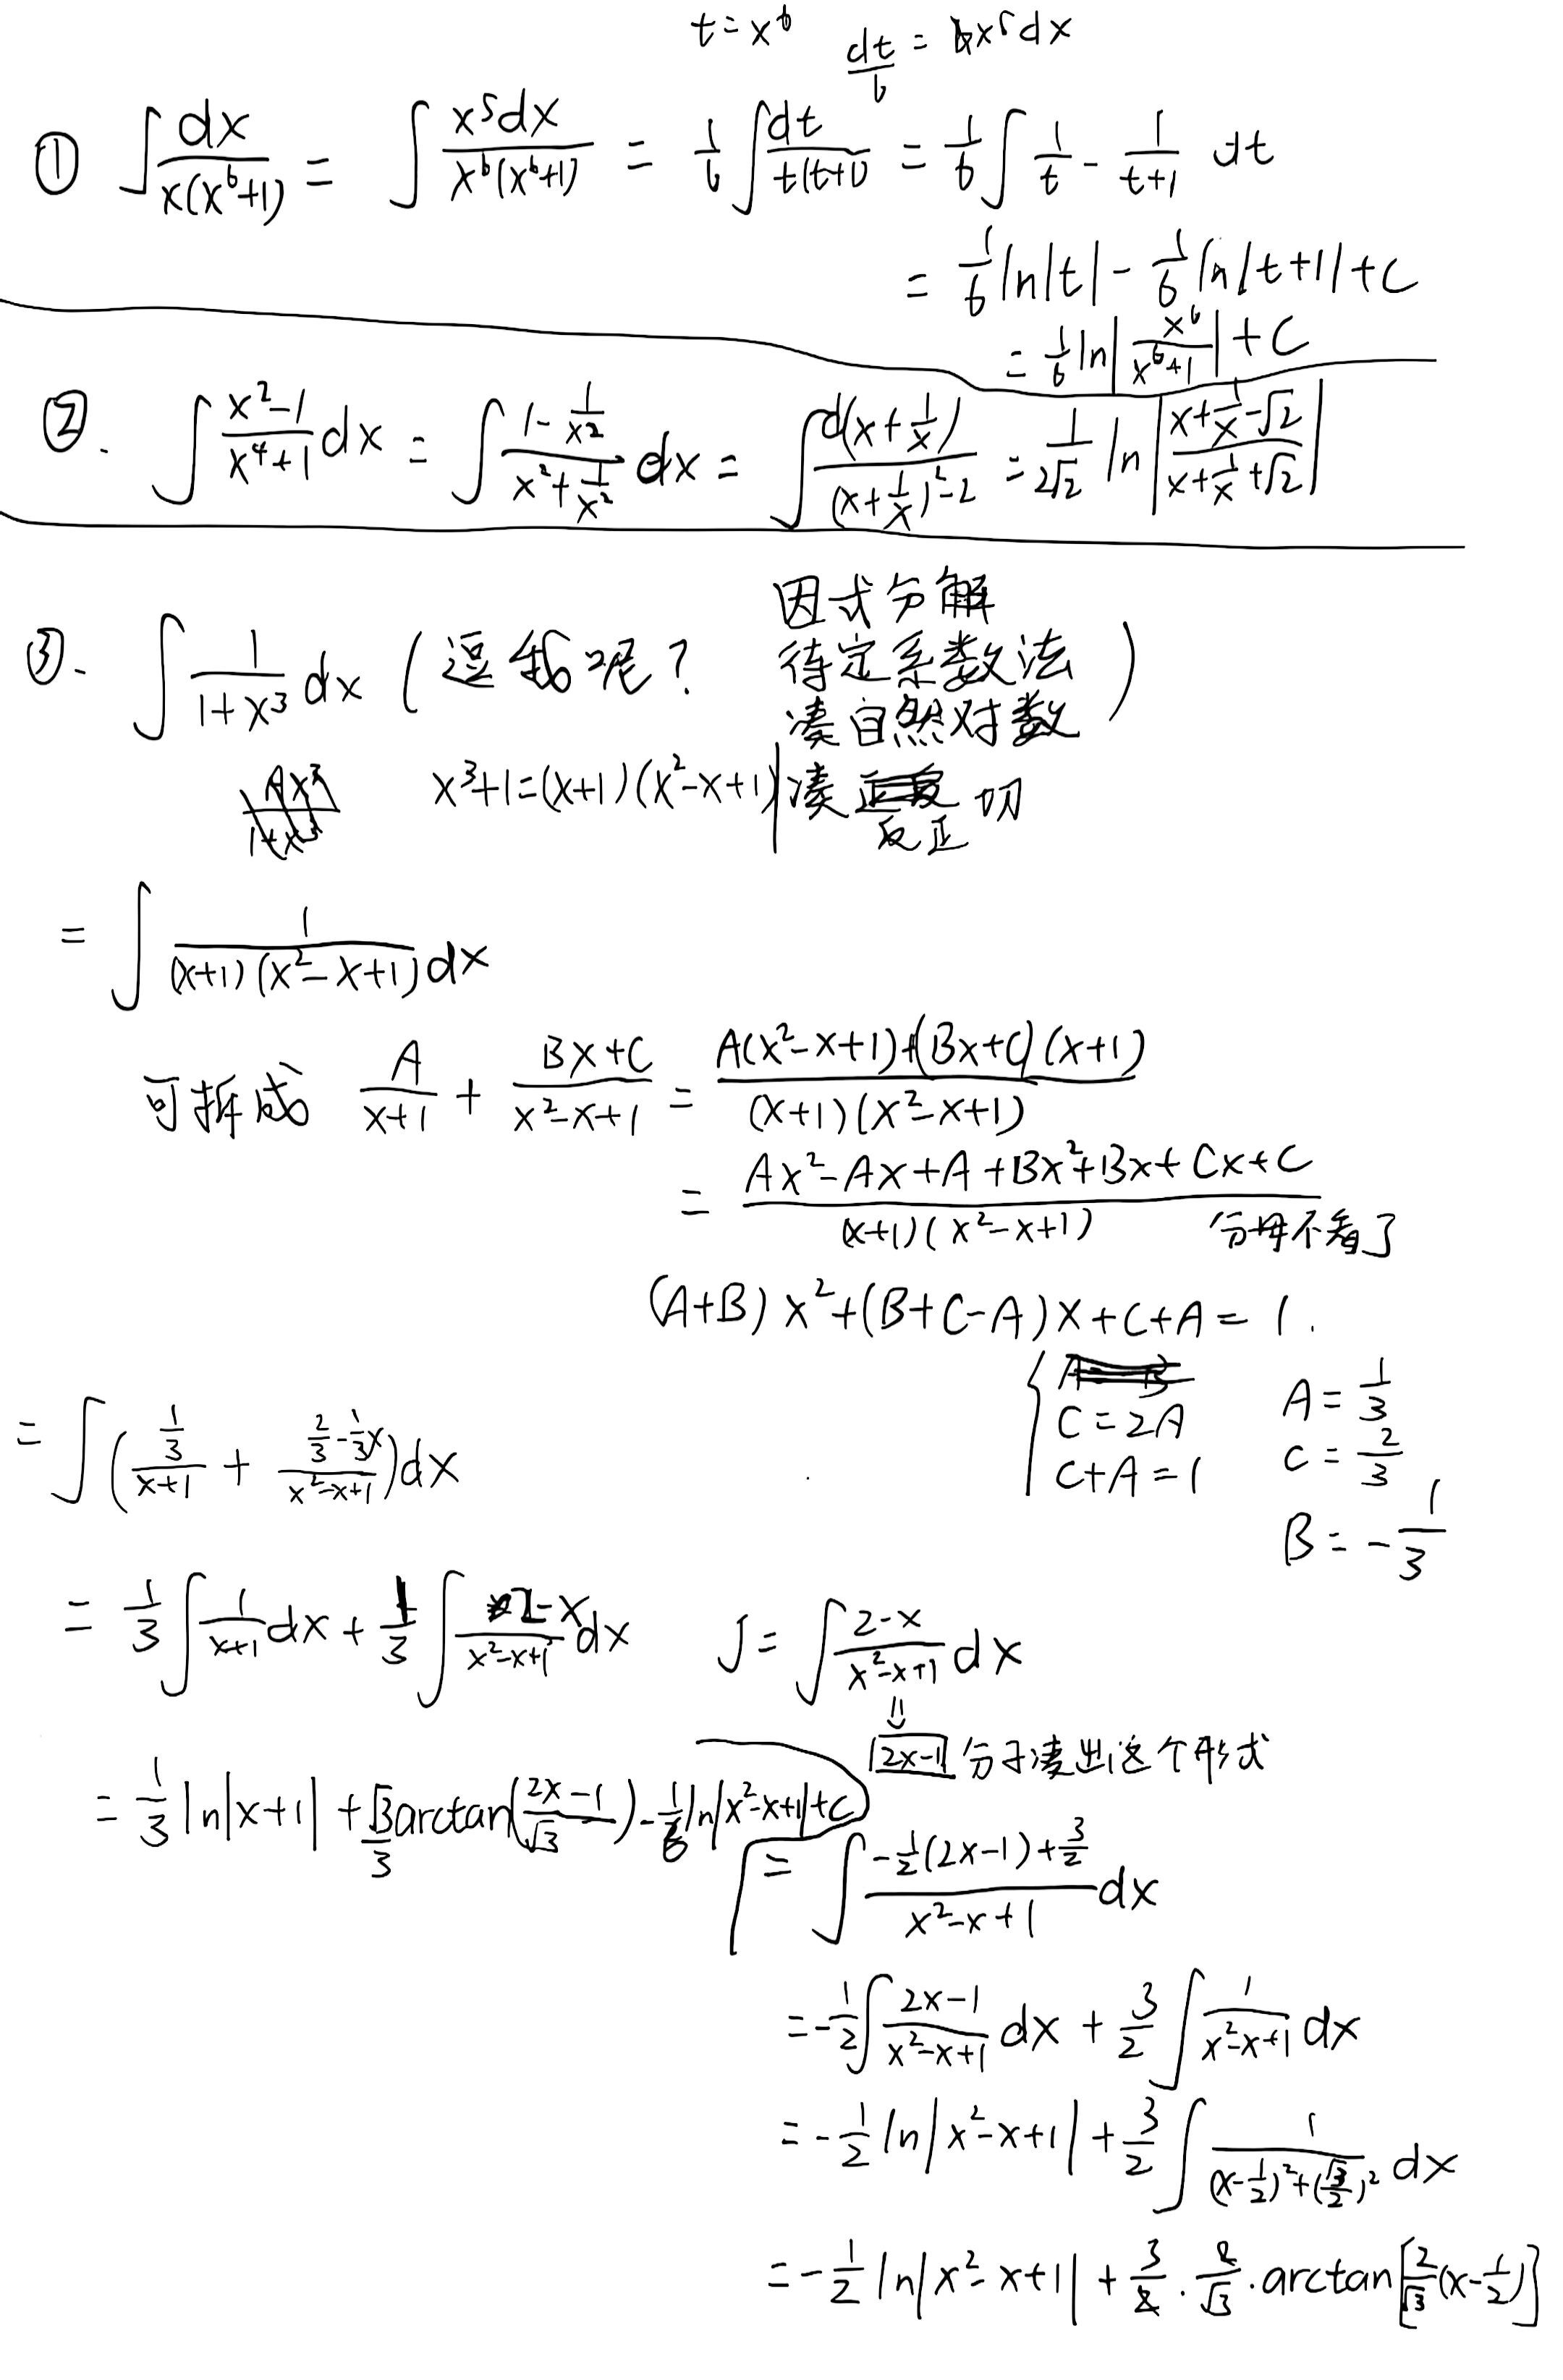 t=x⁶ dt/6 = x⁵dx
① ∫dx/(x(x⁶+1)) = ∫x⁵dx/(x⁶(x⁶+1)) = 1/6∫dt/(t(t+1)) = 1/6∫1/t - 1/(t+1) dt
= 1/6 ln|t| - 1/6 ln|t+1| + C
= 1/6 ln|x⁶/(x⁶+1)| + C
②. ∫(x²-1)/(x⁴+1) dx = ∫(1-1/x²)/(x²+1/x²) dx = ∫d(x+1/x)/((x+1/x)²-2) = 1/(2√2) ln|(x+1/x-√2)/(x+1/x+√2)|
③. ∫1/(1+x³) dx (逗我呢? 因式分解
待定系数法
凑自然对数)
x³+1=(x+1)(x²-x+1) 凑反正切
= ∫1/((x+1)(x²-x+1)) dx
可拆成 A/(x+1) + (Bx+C)/(x²-x+1) = (A(x²-x+1)+(Bx+C)(x+1))/((x+1)(x²-x+1))
= (Ax²-Ax+A+Bx²+Bx+Cx+C)/((x+1)(x²-x+1)) 分母不看了
(A+B)x²+(B+C-A)x+C+A=1.
C=2A A=1/3
C+A=1 C=2/3
B=-1/3
= ∫((1/3)/(x+1) + (2/3-1/3x)/(x²-x+1))dx
= 1/3∫1/(x+1) dx + 1/3∫(2-x)/(x²-x+1) dx J=∫(2-x)/(x²-x+1) dx
2x-1 分子凑出这个形式
= 1/3 ln|x+1| + √3/3 arctan((2x-1)/√3) - 1/6 ln|x²-x+1|+C
= ∫(-1/2(2x-1)+3/2)/(x²-x+1) dx
= -1/2∫(2x-1)/(x²-x+1) dx + 3/2∫1/(x²-x+1) dx
= -1/2 ln|x²-x+1| + 3/2∫1/((x-1/2)²+(√3/2)²) dx
= -1/2 ln|x²-x+1| + 3/2·2/√3·arctan[2/√3(x-1/2)]